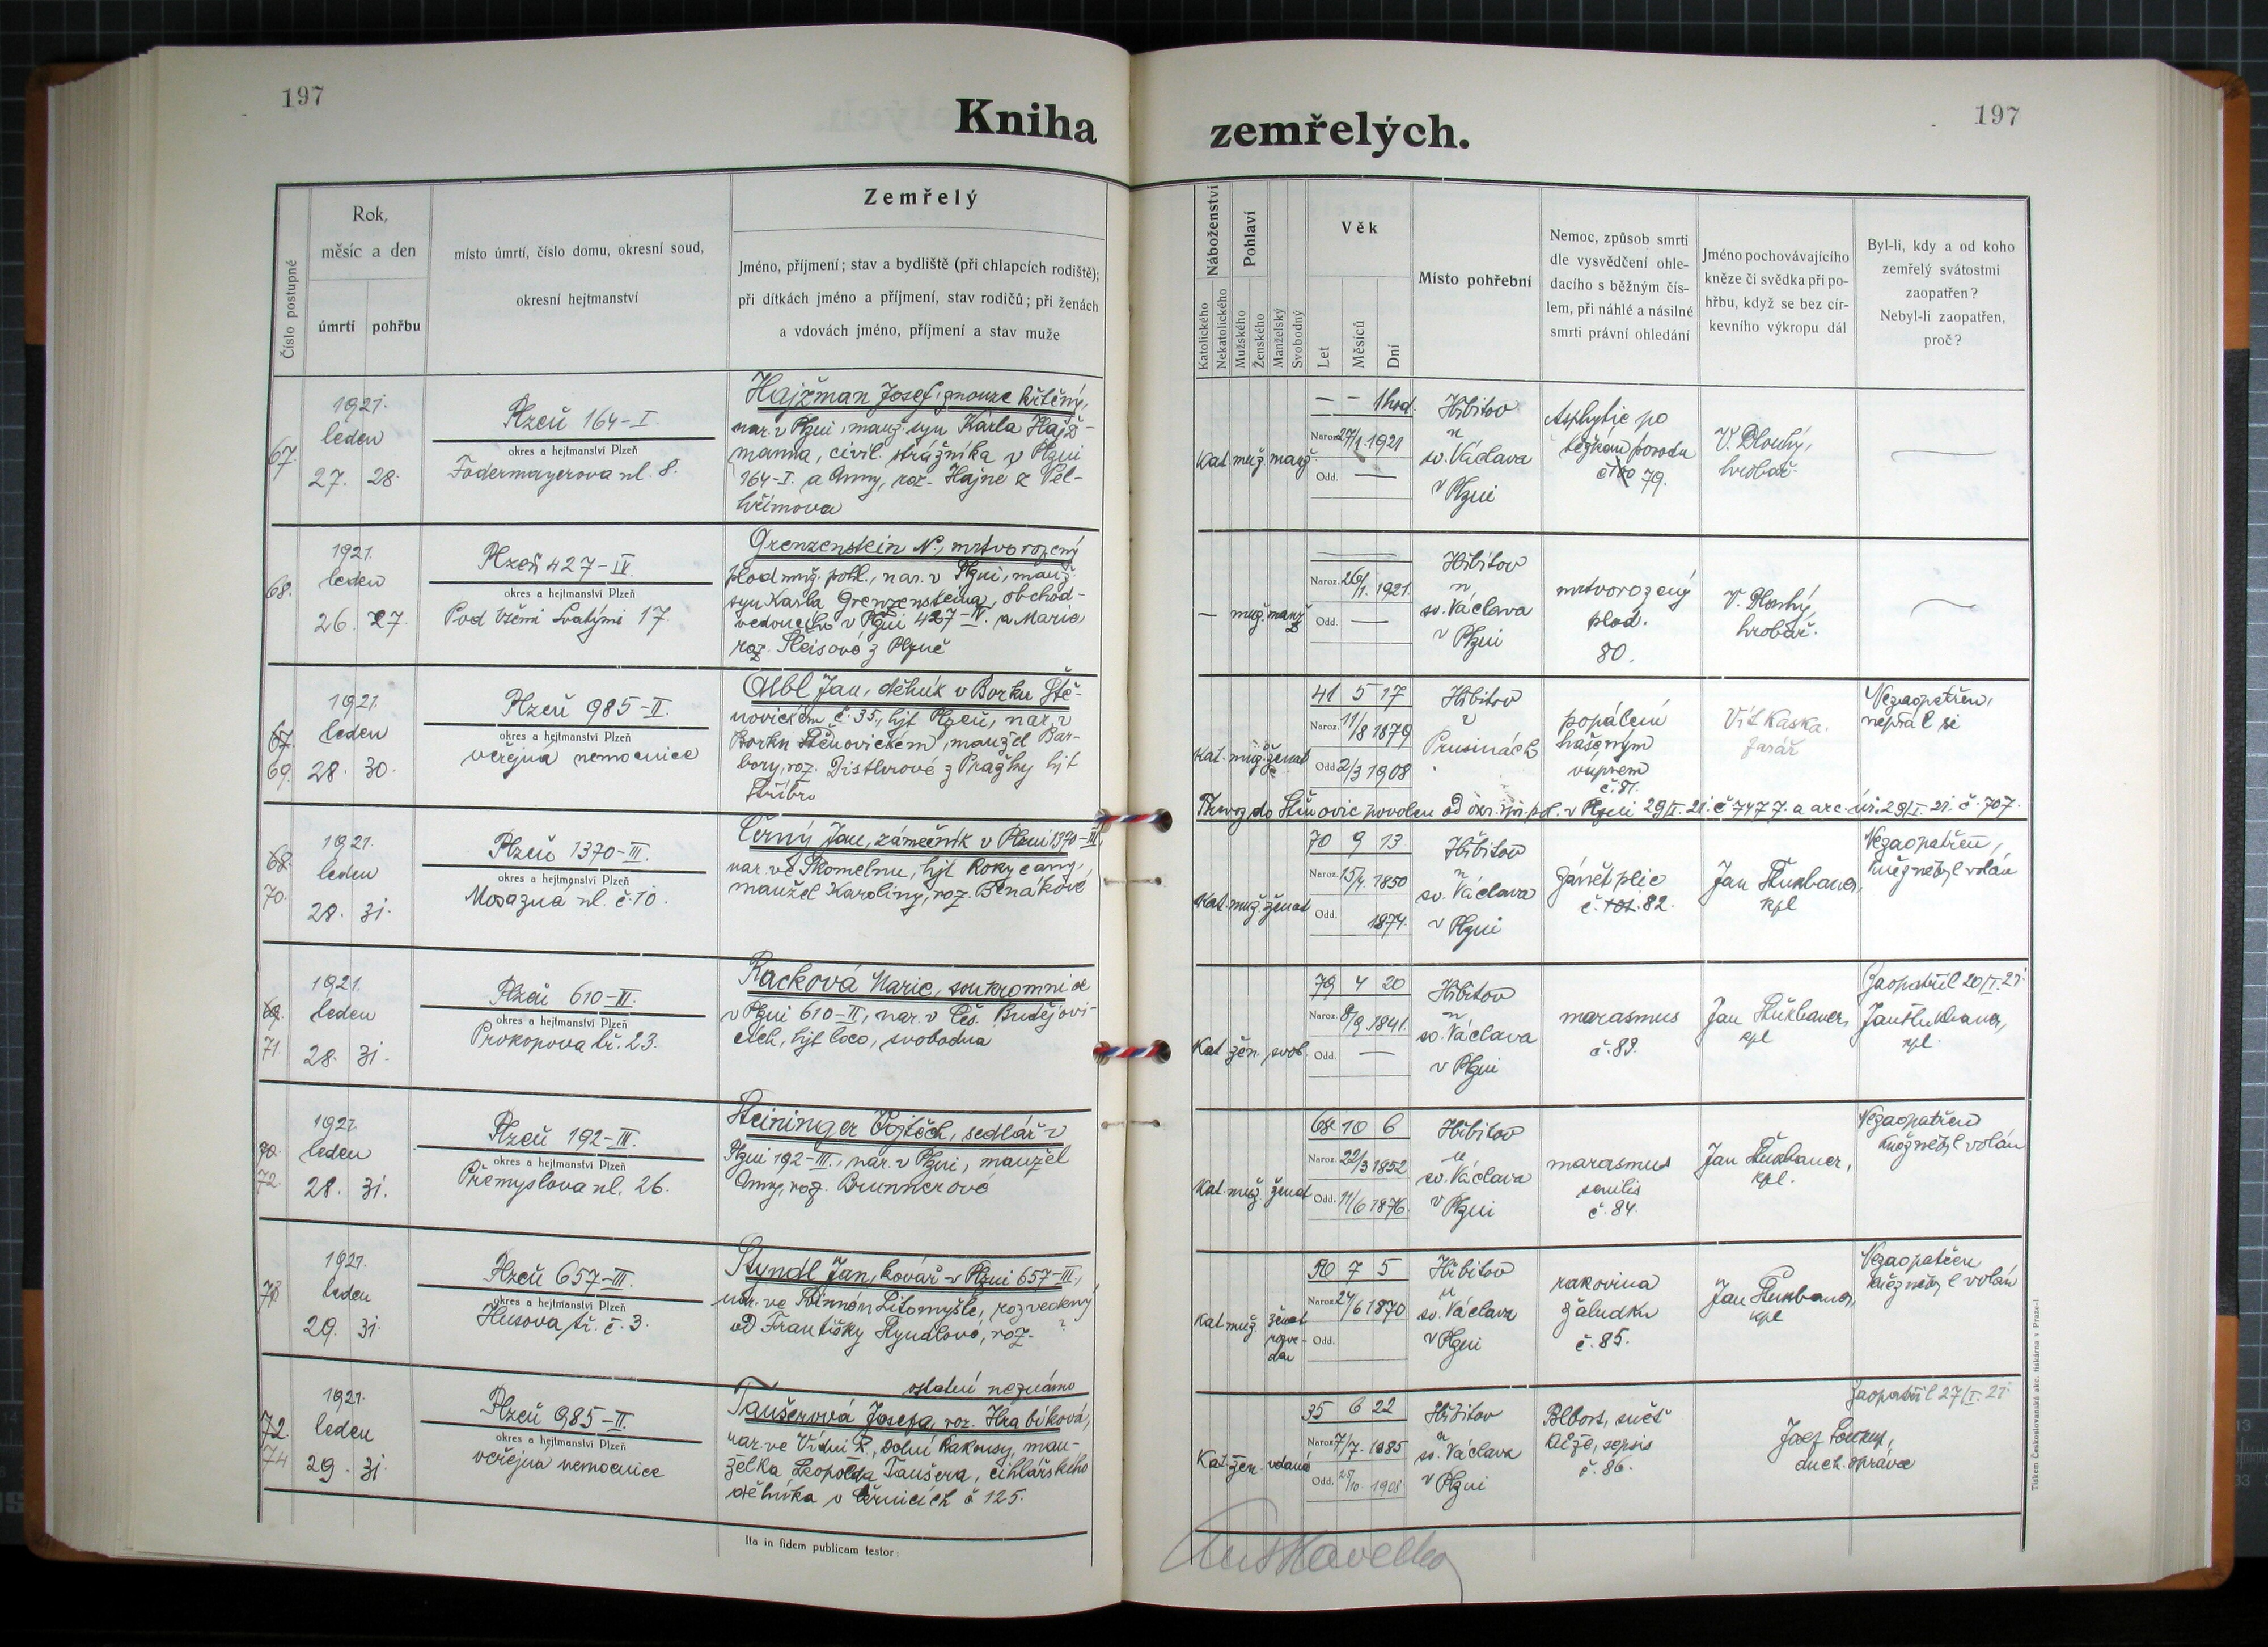 197
197
Kniha zemřelých.
Číslo postupné
Rok,
měsíc a den
úmrtí
pohřbu
místo úmrtí, číslo domu, okresní soud,
okresní hejtmanství
Zemřelý
Jméno, příjmení; stav a bydliště (při chlapcích rodiště);
při dítkách jméno a příjmení, stav rodičů; při ženách
a vdovách jméno, příjmení a stav muže
Náboženství
Katolického
Nekatolického
Pohlaví
Mužského
Ženského
Manželský
Svobodný
Věk
Let
Měsíců
Dní
Místo pohřební
Nemoc, způsob smrti
dle vysvědčení ohle-
dacího s běžným čís-
lem, při náhlé a násilné
smrti právní ohledání
Jméno pochovávajícího
kněze či svědka při po-
hřbu, když se bez cír-
kevního výkropu dál
Byl-li, kdy a od koho
zemřelý svátostmi
zaopatřen?
Nebyl-li zaopatřen,
proč?
67.
1921.
leden
27. 28.
Plzeň 164-I.
okres a hejtmanství Plzeň
Fodermayerova ul. 8.
Hajžman Josef, z nouze křtěný,
nar. v Plzni, manž. syn Karla Hajž-
manna, civil. strážníka v Plzni
164-I. a Anny, roz. Hajné z Pel-
hřimova
Kat. muž. manž.
— — 1 hod.
Naroz. 27/1. 1921
Odd. —
Hřbitov
u
sv. Václava
v Plzni
Asphytie po
těžkém porodu
č. 79.
V. Dlouhý,
hrobař.
—
68.
1921.
leden
26. 27.
Plzeň 427-IV.
okres a hejtmanství Plzeň
Pod Všemi Svatými 17.
Grenzenstein N., mrtvorozený
plod muž. pohl., nar. v Plzni, manž.
syn Karla Grenzensteina, obchod-
vedoucího v Plzni 427-IV. a Marie
roz. Šleisové z Plzně
— muž. manž
Naroz. 26/1. 1921.
Odd. —
Hřbitov
u
sv. Václava
v Plzni
mrtvorozený
plod.
80.
V. Dlouhý,
hrobař.
67.
69.
1921.
leden
28. 30.
Plzeň 985-II.
okres a hejtmanství Plzeň
veřejná nemocnice
Albl Jan, dělník v Borku Ště-
novickém č. 35, hjt Plzeň, nar. v
Borku Štěnovickém, manžel Bar-
bory, roz. Distlerové z Pražky hjt
Stříbro
Kat. muž. ženat
41 5 17
Naroz. 11/8 1879
Odd. 2/3 1908
Hřbitov
v
Prusinách
popálení
hašeným
vápnem
č. 81.
Vít Kaska.
farář
Nezaopatřen,
nepřál si
Převoz do Štěnovic povolen od okr. spr. pol. v Plzni 29/I. 21. č 7477. a arc. úř. 29/I. 21. č. 707.
68.
70.
1921.
leden
28. 31.
Plzeň 1370-III.
okres a hejtmanství Plzeň
Mosazná ul. č. 10.
Černý Jan, zámečník v Plzni 1370-III,
nar. ve Skomelnu, hjt Rokycany,
manžel Karoliny, roz. Benákové
Kat. muž. ženat
70 9 13
Naroz. 15/4. 1850
Odd. 1874.
Hřbitov
u
sv. Václava
v Plzni
zánět plic
č. 82.
Jan Štukbauer,
kpl
Nezaopatřen,
kněz nebyl volán
69.
71.
1921.
leden
28. 31.
Plzeň 610-II.
okres a hejtmanství Plzeň
Prokopova tř. 23.
Racková Marie, soukromnice
v Plzni 610-II, nar. v Čes. Budějovi-
cích, hjt loco, svobodna
Kat. žen. svob.
79 4 20
Naroz. 8/9. 1841.
Odd. —
Hřbitov
u
sv. Václava
v Plzni
marasmus
č. 83.
Jan Štukbauer,
kpl
Zaopatřil 20/I. 21.
Jan Štukbauer,
kpl.
70.
72.
1921.
leden
28. 31.
Plzeň 192-III.
okres a hejtmanství Plzeň
Přemyslova ul. 26.
Steininger Vojtěch, sedlář v
Plzni 192-III., nar. v Plzni, manžel
Anny, roz. Brunnerové
Kat. muž. ženat
68 10 6
Naroz. 22/3 1852
Odd. 11/6 1876.
Hřbitov
u
sv. Václava
v Plzni
marasmus
senilis
č. 84.
Jan Štukbauer,
kpl.
Nezaopatřen
kněz nebyl volán
73
1921.
leden
29. 31.
Plzeň 657-III.
okres a hejtmanství Plzeň
Husova tř. č. 3.
Styndl Jan, kovář v Plzni 657-III.,
od Františky Styndlové, roz. ?
ostatní neznámo
Kat. muž. ženat
rozve-
den
50 7 5
Naroz. 24/6 1870
Odd.
Hřbitov
u
sv. Václava
v Plzni
rakovina
žaludku
č. 85.
Jan Štukbauer,
kpl
Nezaopatřen
kněz nebyl volán
72.
74
1921.
leden
29. 31.
Plzeň 985-II.
okres a hejtmanství Plzeň
veřejná nemocnice
Taušerová Josefa, roz. Hrabíková,
nar. ve Vídni X, Dolní Rakousy, man-
želka Leopolda Taušera, cihlářského
dělníka v Černicích č 125.
Kat. žen. vdaná
35 6 22
Naroz. 7/7. 1885
Odd. 25/10. 1908.
Hřbitov
u
sv. Václava
v Plzni
sepsis
č. 86.
Zaopatřil 27/I. 21.
Josef Soukup,
duch. správce
Ita in fidem publicam testor:
Tiskem Československá akc. tiskárna v Praze-I